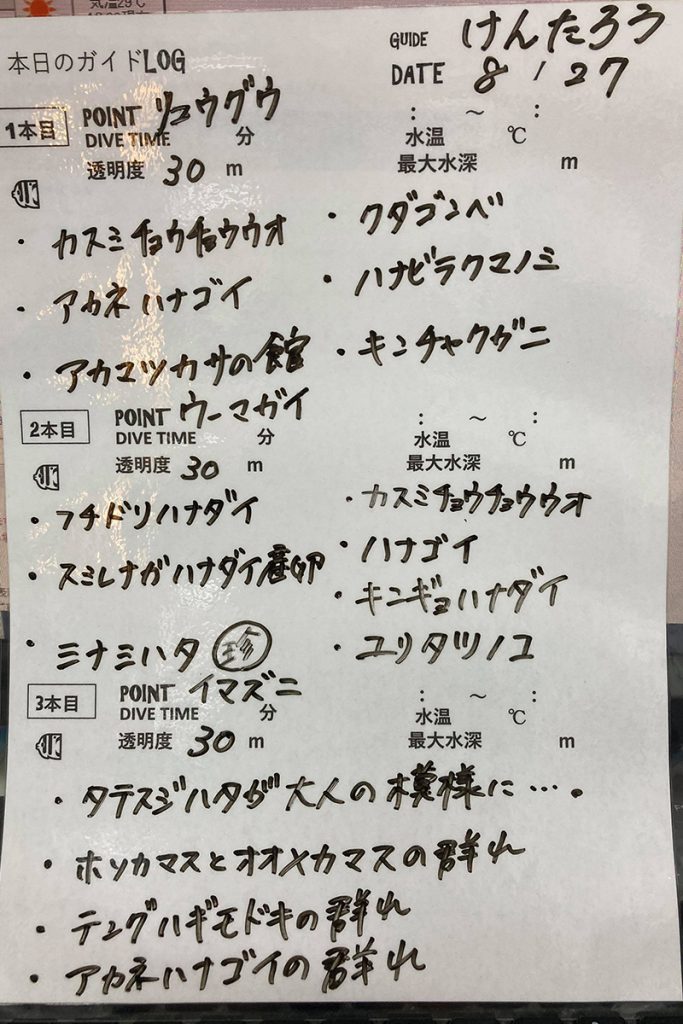 気温29℃
本日のガイドLOG
GUIDE けんたろう
DATE 8/27
1本目 POINT リュウグウ
DIVE TIME 分
: ～ :
水温 ℃
透明度 30 m
最大水深 m
・カスミチョウチョウウオ
・アカネハナゴイ
・アカマツカサの館
・クダゴンベ
・ハナビラクマノミ
・キンチャクガニ
2本目 POINT ウーマガイ
DIVE TIME 分
: ～ :
水温 ℃
透明度 30 m
最大水深 m
・フチドリハナダイ
・スミレナガハナダイ産卵
・ミナミハタ 珍
・カスミチョウチョウウオ
・ハナゴイ
・キンギョハナダイ
・ユリタツノコ
3本目 POINT イマズニ
DIVE TIME 分
: ～ :
水温 ℃
透明度 30 m
最大水深 m
・タテスジハタが大人の模様に…。
・ホソカマスとオオメカマスの群れ
・テングハギモドキの群れ
・アカネハナゴイの群れ